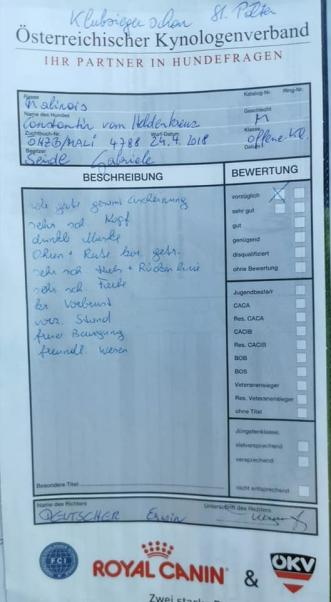 Klubsiegerschau St. Pölten
Österreichischer Kynologenverband
IHR PARTNER IN HUNDEFRAGEN
Rasse
Malinois
Katalog-Nr. Ring-Nr.
Name des Hundes
Constantin vom Heldenkreuz
Geschlecht
M
Zuchtbuch-Nr.
Wurf-Datum
ÖHZB/MALI 4788 24.4.2018
Klasse
offene Kl.
Besitzer
Gabriele
Datum
BESCHREIBUNG
BEWERTUNG
vorzüglich
sehr gut
gut
genügend
disqualifiziert
ohne Bewertung
sehr gute gesamt Erscheinung
sehr sch. Kopf
dunkle Maske
Ohren + Rute kor. getr.
sehr sch. + Rückenlinie
sehr sch. Farbe
kor. Vorbrust
vorz. Stand
freie Bewegung
freundl. Wesen
Jugendbeste/r
CACA
Res. CACA
CACIB
Res. CACIB
BOB
BOS
Veteranensieger
Res. Veteranensieger
ohne Titel
Jüngstenklasse:
vielversprechend
versprechend
nicht entsprechend
Besondere Titel
Name des Richters
Unterschrift des Richters
DEUTSCHER Erwin
FCI
ROYAL CANIN & ÖKV
Zwei starke